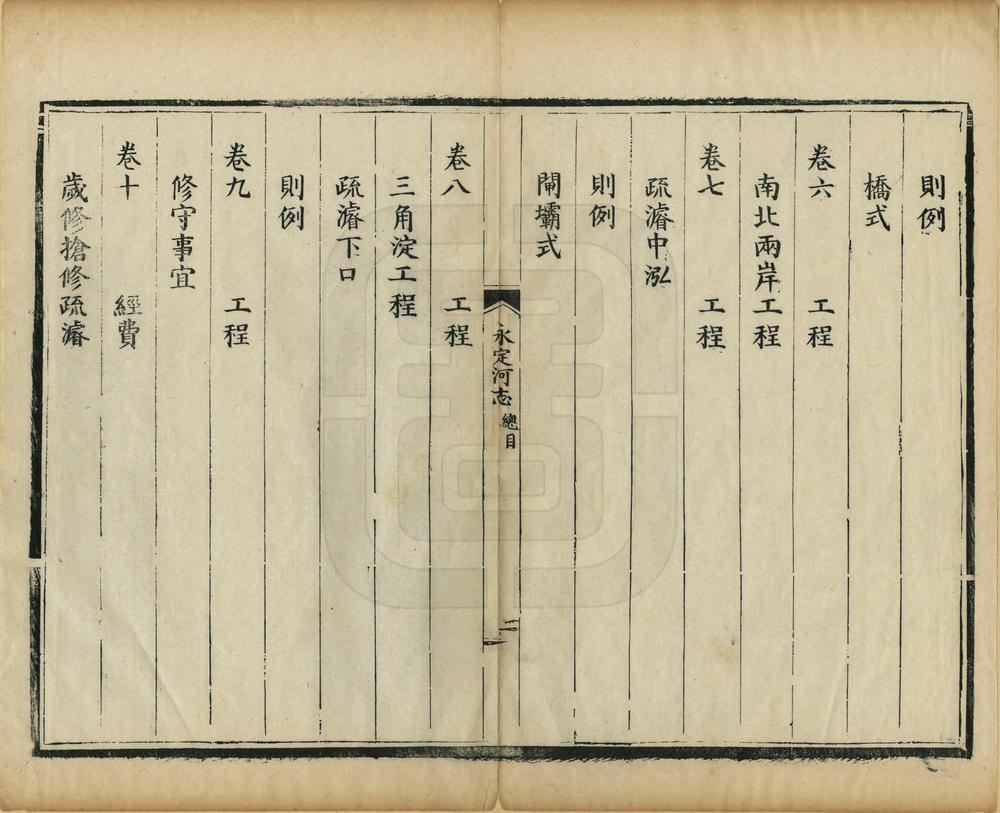 則例
橋式
卷六　工程
南北兩岸工程
卷七　工程
疏濬中泓
則例
閘壩式
永定河志　總目
卷八　工程
三角淀工程
疏濬下口
則例
卷九　工程
修守事宜
卷十　經費
歲修搶修疏濬